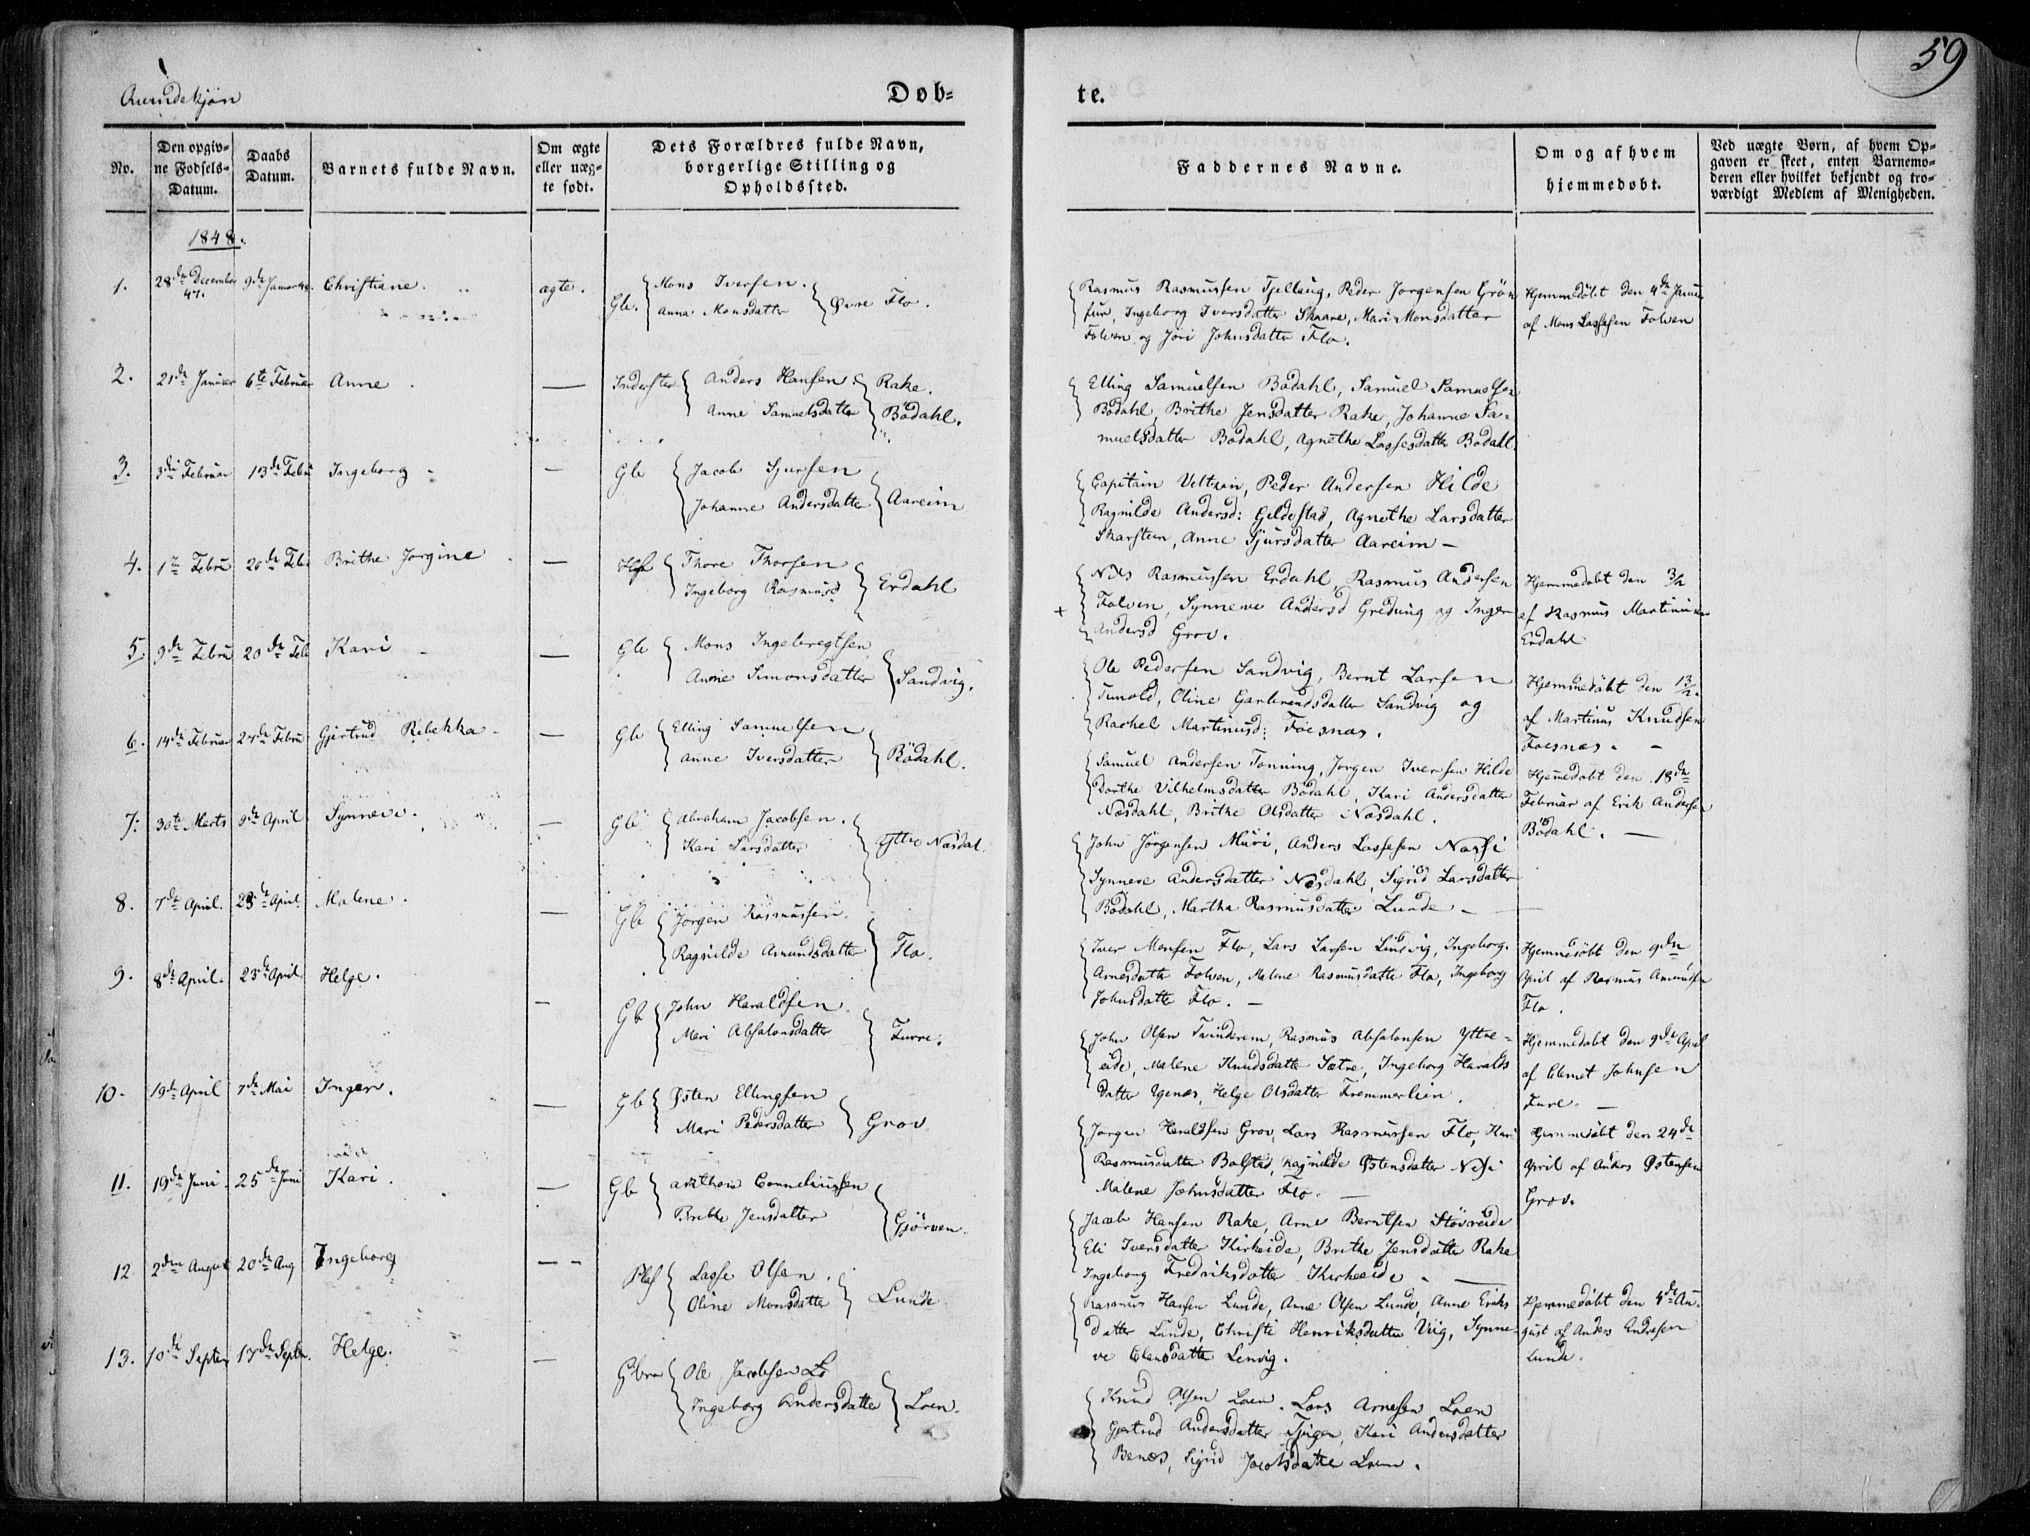 59
Qvindekjøn
Døb-
te.
No.
Den opgiv-
ne Fødsels-
Datum.
Daabs
Datum.
Barnets fulde Navn.
Om ægte
eller uæg-
te født.
Dets Forældres fulde Navn,
borgerlige Stilling og
Opholdssted.
Faddernes Navne.
Om og af hvem
hjemmedøbt.
Ved uægte Børn, af hvem Op-
gaven er skeet, enten Barnemo-
deren eller hvilket bekjendt og tro-
værdigt Medlem af Menigheden.
1848.
1. 28de December 47. 9de Januar 48. Christiane. ægte. Gb. Mons Iversen.
Anna Monsdatter Øvre Flo.
Rasmus Rasmussen Tjellaug, Peder Jørgensen Grøn
fur, Ingeborg Iversdatter Skaare, Mari Monsdatter
Folven og Jøri Johnsdatter Flo.
Hjemmedøbt den 4de Januar
af Mons Lassesen Folven
2. 21de Januar 6te Februar Anne. — Inderster Anders Hansen Rake.
Anne Samuelsdatter Bødahl.
Elling Samuelsen Bødahl, Samuel Samuelsen
Bødahl, Brithe Jensdatter Rake, Johanne Sa-
muelsdatter Bødahl, Agnethe Lassesdatter Bødahl.
3. 3die Februar 13de Febru Ingeborg — Gb Jacob Sjursen
Johanne Andersdatter Aareim
Capitain, Peder Andersen Hilde
Ragnilde Andersd: Gildestad, Agnethe Larsdatter
Skarsteen, Anne Sjursdatter Aareim —
4. 1te Febru 20de Feb. Brithe Jørgine — Thore Thorsen
Ingeborg Rasmusd Erdahl
Nils Rasmussen Erdahl, Rasmus Andersen
Folven, Synneve Andersd Greduig og Inger
Andersd Grov.
Hjemmedøbt den 3/2
af Rasmus Martinusen
Erdahl
5. 9de Febru 20de Feb Kari — Gb Mons Ingebregtsen
Anne Simonsdatter Sandvig.
Ole Pedersen Sandvig, Bernt Larsen
Tunold, Oline Garbrandsdatter Sandvig og
Rachel Martinusd: Foesnæs.
Hjemmedøbt den 13/2.
af Martinus Knudsen
Foesnæs. —
6. 14de Februar 27de Febru Gjertrud Rebekka — Gb Elling Samuelsen
Anne Iversdatter Bødahl.
Samuel Andersen Tonning, Jørgen Iversen Hilde
Dorthe Vilhelmsdatter Bødahl, Kari Andersdatter
Næsdahl, Brithe Olsdatter Næsdahl.
Hjemmedøbt den 18de
Februar af Erik Andersen
Bødahl. —
7. 30te Marts 9de April Synneve. — Gb Abraham Jacobsen.
Kari Larsdatter Ytre Næsdal.
John Jørgensen Muri, Anders Lassesen Næssi
Synneve Andersdatter Næsdahl, Sigrid Larsdatter
Bødahl, Martha Rasmusdatter Lunde —
8. 7de April. 23de April. Malene. — Gb Jørgen Rasmussen
Ragnilde Amundsdatter Flo.
Iver Monsen Flo, Lars Larsen Lindvig, Ingeborg
Arnesdatter Folven, Malene Rasmusdatter Flo, Ingeborg
Johnsdatter Flo. —
Hjemmedøbt den 9de
April af Rasmus Amundsen
Flo.
9. 8de April. 23de April Helge. — Gb John Haraldsen.
Mari Absalonsdatter Furre.
John Olsen Tvinderem, Rasmus Absalonsen Yttre-
eide, Malene Knudsdatter Sætre, Ingeborg Haralds
datter Ygenæs, Helge Olsdatter Fremmerlien.
Hjemmedøbt den 9de April
af Clemet Johnsen
Fure. —
10. 19de April 7de Mai Inger. — Gb Østen Ellingsen
Mari Pedersdatter Grov
Jørgen Haraldsen Grov, Lars Rasmussen Flo, Kari
Rasmusdatter Bolstad, Ragnilde Østensdatter Nesi
Malene Johnsdatter Flo. —
Hjemmedøbt den 24de
April af Anders Østensen
Grov.
11. 19de Juni. 25de Juni Kari. — Gb Anthon Corneliussen
Brithe Jensdatter Gjørven.
Jacob Hansen Rake, Arne Berntsen Støvreide
Eli Iversdatter Kirkeide, Brithe Jensdatter Rake
Ingeborg Fredriksdatter Kirkeeide. —
12. 2den August 20de Aug Ingeborg — Plaf Lasse Olsen.
Oline Monsdatter Lunde
Rasmus Hansen Lunde, Arne Olsen Lunde, Anne Eriks
datter Lunde, Christi Henriksdatter Viig, Synne-
ve Clausdatter Lenvig.
Hjemmedøbt den 5de Au-
gust af Anders Andresen
Lunde.
13. 10de Septer 17de Septbr. Helge. — Ole Jacobsen Lo
Ingeborg Andersdatter Loen.
Knud Olsen Loen. Lars Arnesen Loen
Gjertrud Andersdatter Tjugen, Kari Andersdatter
Benæs, Sigrid Jacobsdatter Loen.